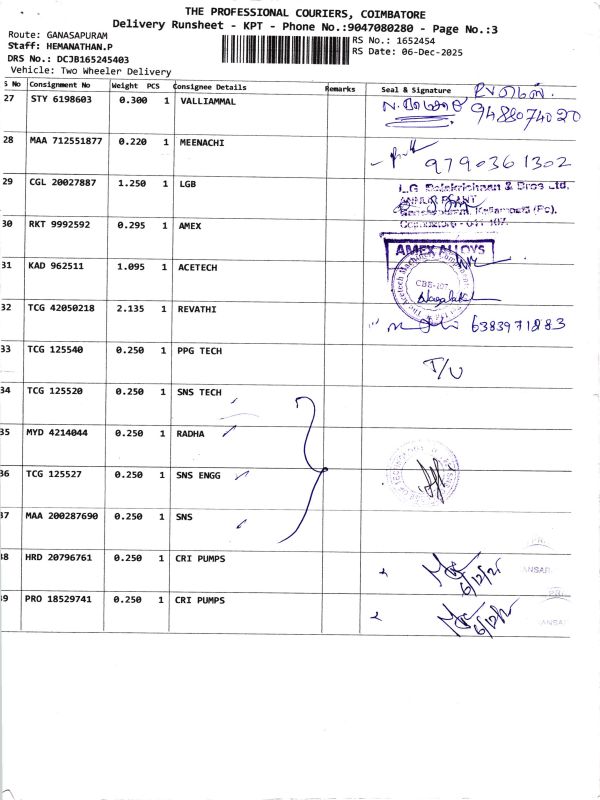 THE PROFESSIONAL COURIERS, COIMBATORE
Delivery Runsheet - KPT - Phone No.:9047080280 - Page No.:3
Route: GANASAPURAM
RS No.: 1652454
Staff: HEMANATHAN.P
RS Date: 06-Dec-2025
DRS No.: DCJB165245403
Vehicle: Two Wheeler Delivery
S No Consignment No Weight PCS Consignee Details Remarks Seal & Signature
27 STY 6198603 0.300 1 VALLIAMMAL
9488074020
28 MAA 712551877 0.220 1 MEENACHI
9790361302
29 CGL 20027887 1.250 1 LGB
L.G. Balakrishnan & Bros Ltd.
30 RKT 9992592 0.295 1 AMEX
AMEX ALLOYS
31 KAD 962511 1.095 1 ACETECH
CBE-107
32 TCG 42050218 2.135 1 REVATHI 6383971883
33 TCG 125540 0.250 1 PPG TECH
T/U
34 TCG 125520 0.250 1 SNS TECH
35 MYD 4214044 0.250 1 RADHA
36 TCG 125527 0.250 1 SNS ENGG
37 MAA 200287690 0.250 1 SNS
38 HRD 20796761 0.250 1 CRI PUMPS
6/12/25
39 PRO 18529741 0.250 1 CRI PUMPS